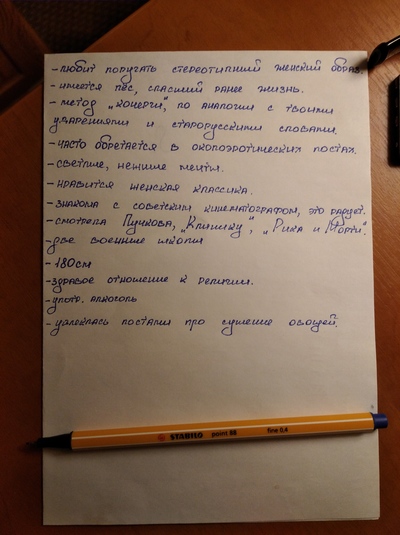 - любит поругать стереотипний женский образ.
- имеется пёс, спасший ранее жизнь.
- метод „кочерги", по аналогии с твоими
ударениями и старорусскими словами.
- часто борется в окопоэротических постах.
- светлие, нежние мечти.
- нравится женская классика.
- знакома с советским кинематографом, это радует.
- смотрела Пучкова, „Клинику", „Рика и Морти".
- две военние школи
- 180см
- здравое отношение к религии.
- употр. алкоголь
- увлеклась постами про сушение овощей.
STABILO point 88 fine 0.4